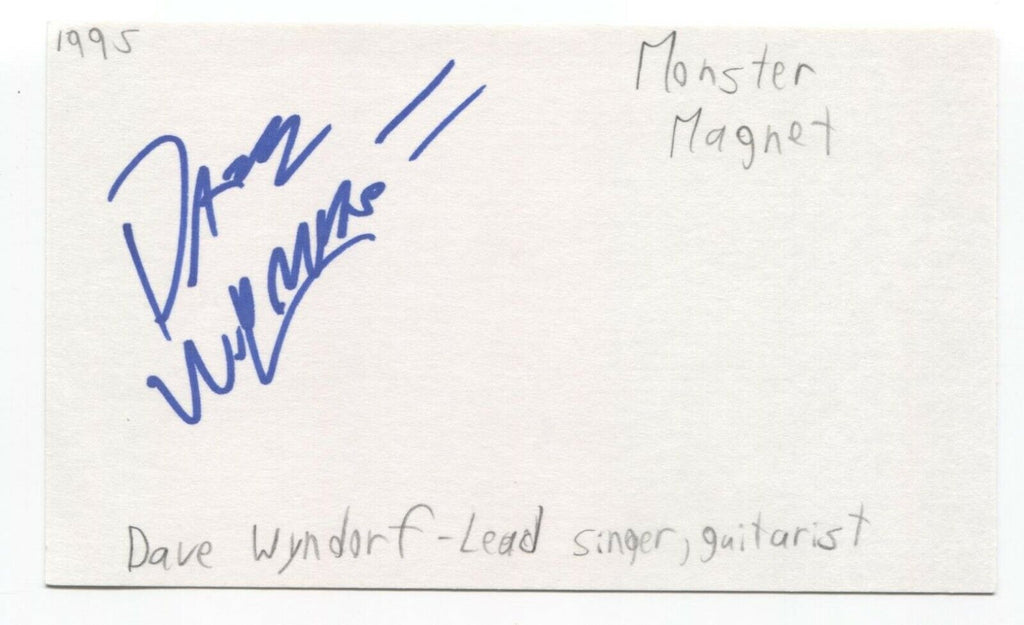 1995
Monster
Magnet
Dave
Wyndorf
Dave Wyndorf - Lead singer, guitarist